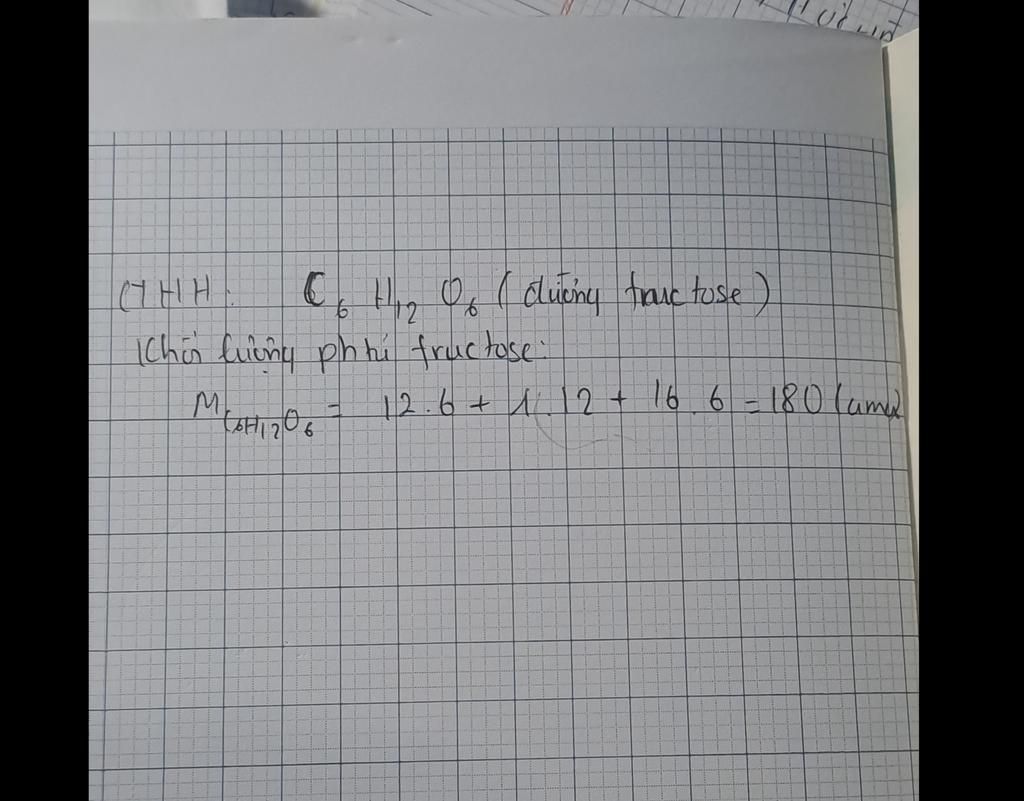 CTHH: C6 H12 O6 (đường fructose)
Khối lượng phtử fructose:
M C6H12O6 = 12.6 + 1.12 + 16.6 = 180 (amu)